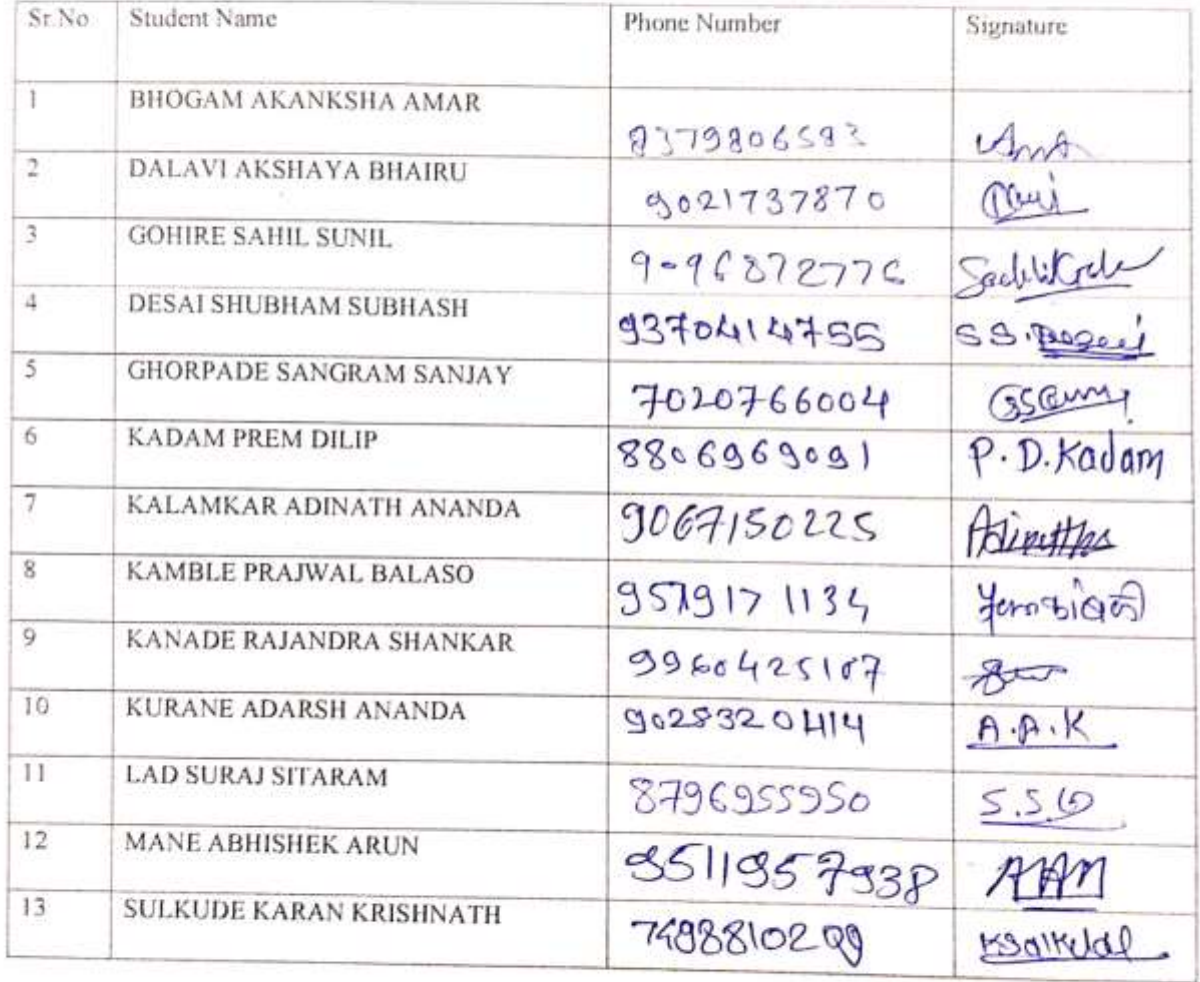 Sr.No Student Name Phone Number Signature
1 BHOGAM AKANKSHA AMAR 8379806583
2 DALAVI AKSHAYA BHAIRU 9021737870
3 GOHIRE SAHIL SUNIL 9096872776
4 DESAI SHUBHAM SUBHASH 9370414755 S S. Desai
5 GHORPADE SANGRAM SANJAY 7020766004
6 KADAM PREM DILIP 8806969091 P. D. Kadam
7 KALAMKAR ADINATH ANANDA 9067150225
8 KAMBLE PRAJWAL BALASO
9 KANADE RAJANDRA SHANKAR 9960425107
10 KURANE ADARSH ANANDA 9028320414 A.A.K
11 LAD SURAJ SITARAM 8796955950
12 MANE ABHISHEK ARUN 9511957938 AAM
13 SULKUDE KARAN KRISHNATH